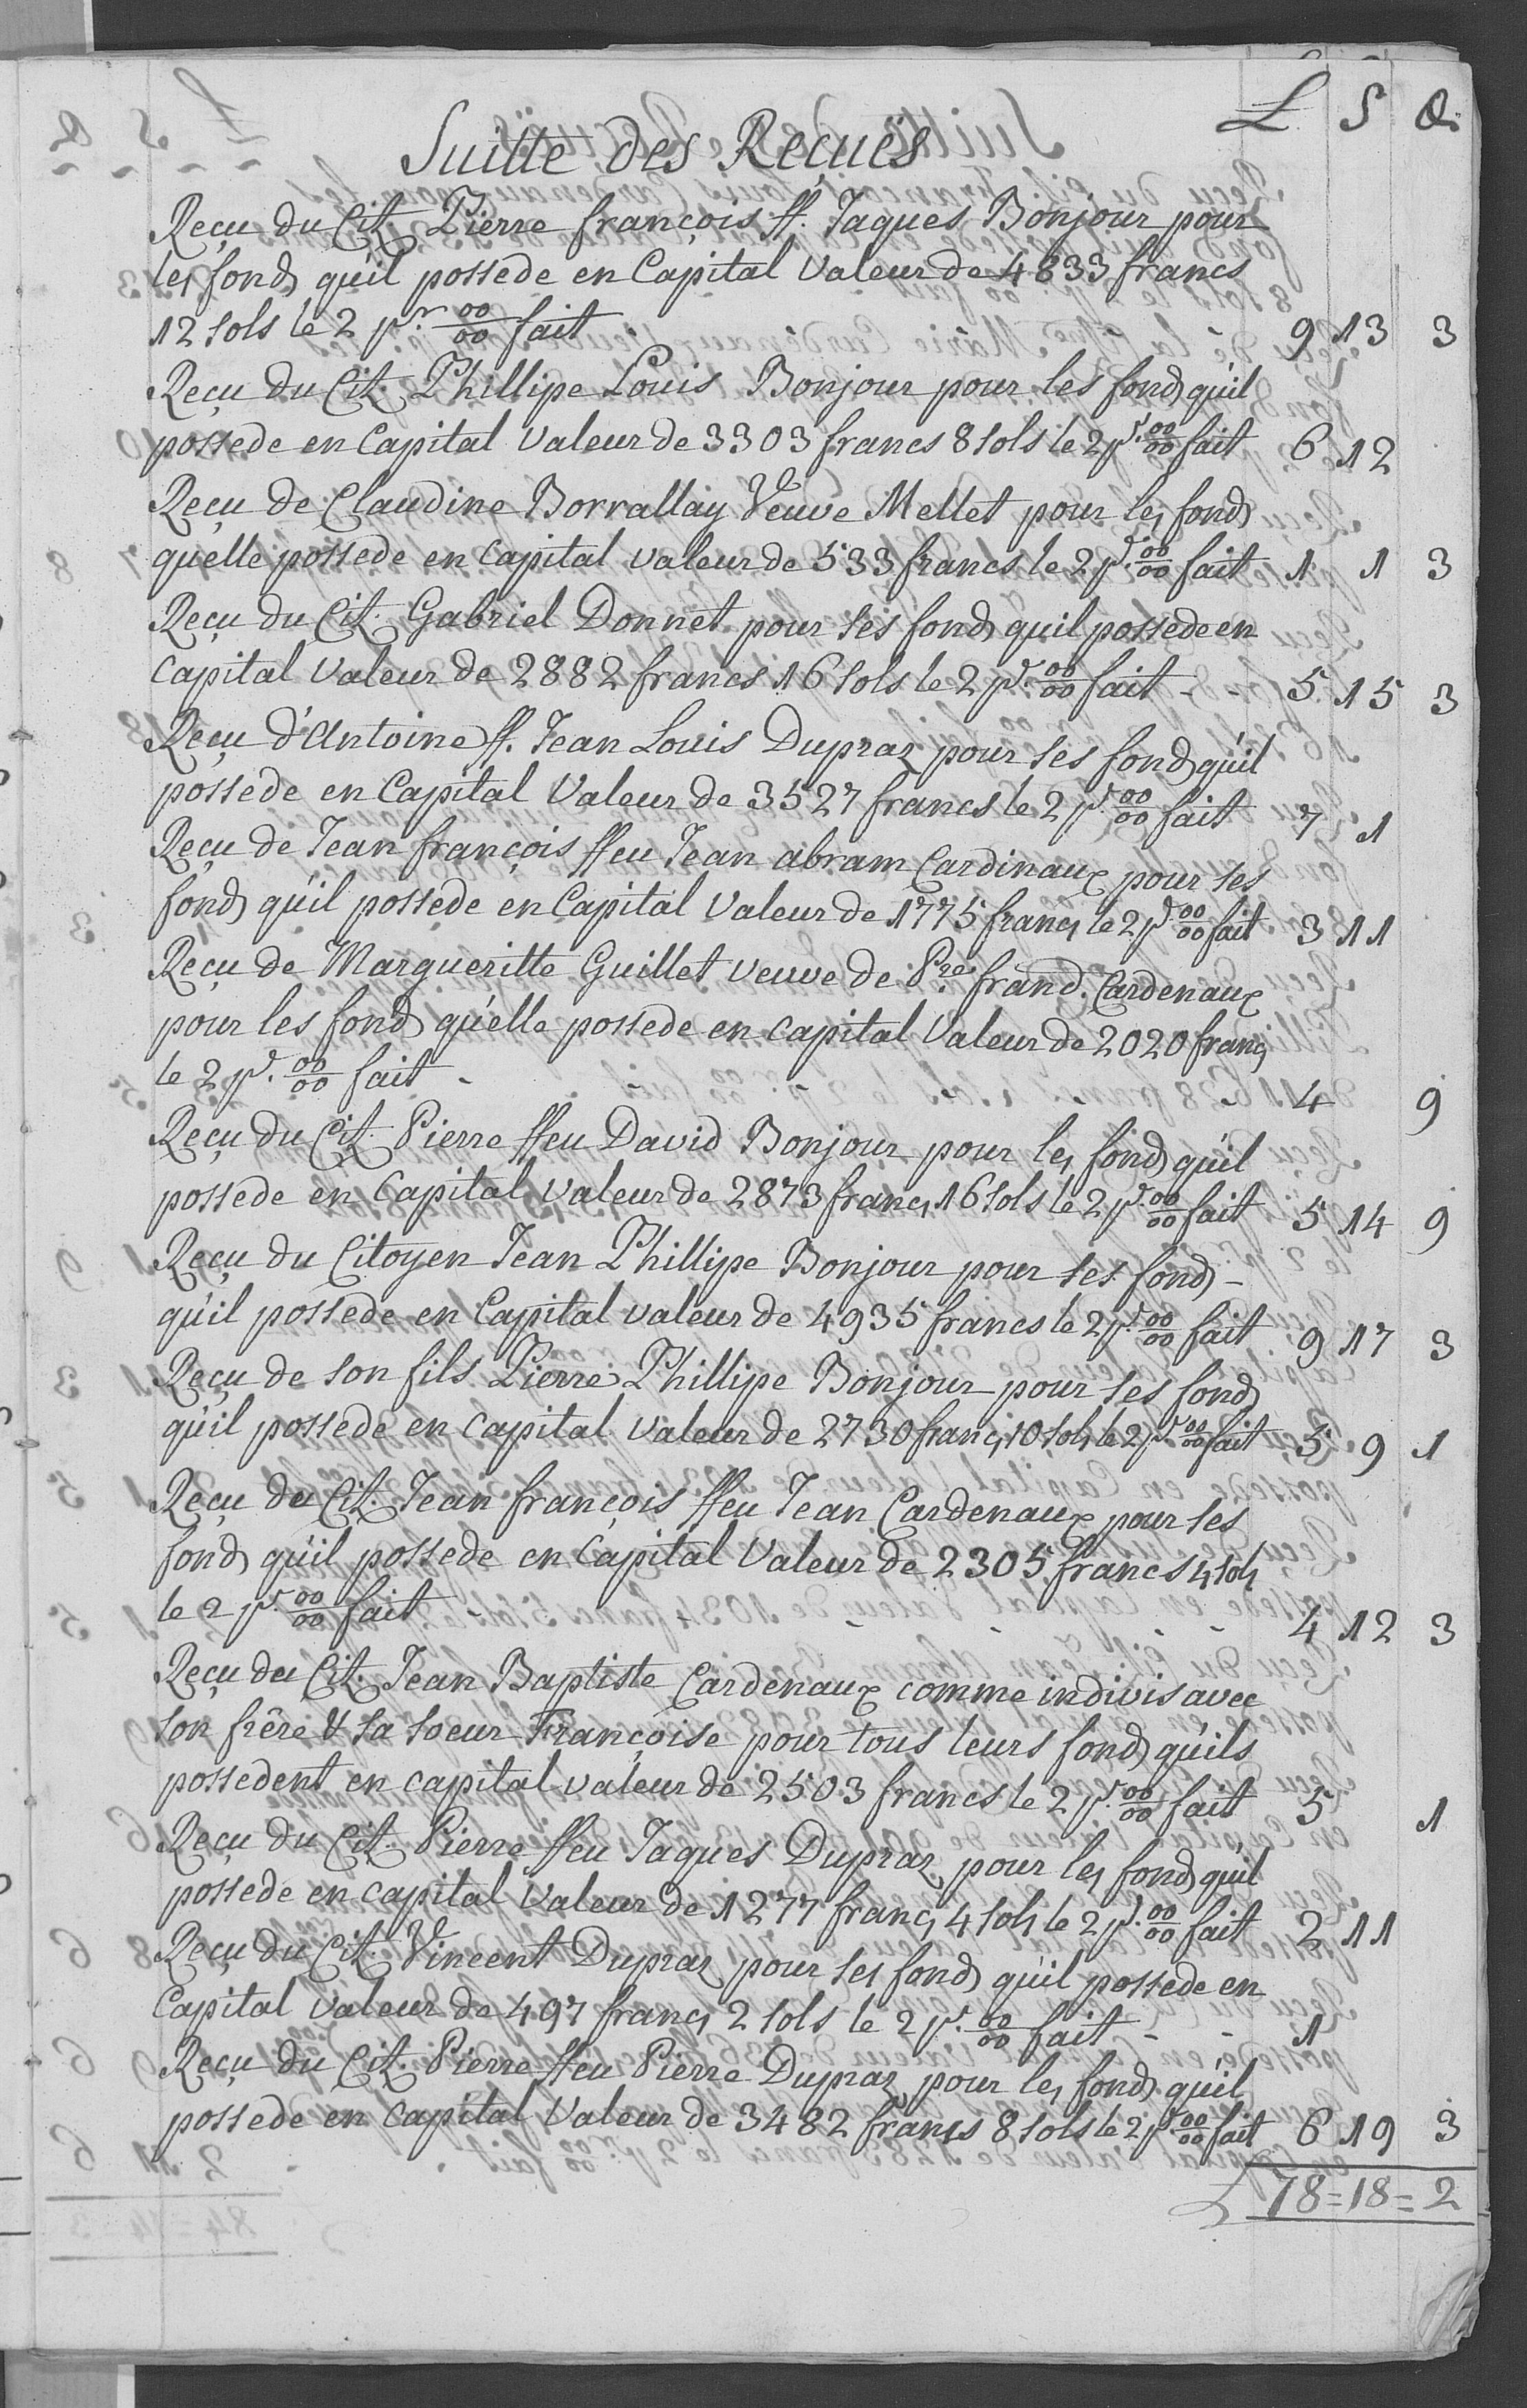 L. S Q.
Suitte des Reçuës
Reçu du Cit. Pierre françois ff. Jaques Bonjour pour
les fond qu'il possede en Capital Valeur de 4833 francs
12 sols le 2 pr. 00/00 fait 9 13 3
Reçu du Cit. Phillipe Louis Bonjour pour les fond qu'il
possede en Capital Valeur de 3303 francs 8 sols le 2 pr. 00/00 fait 6 12
Reçu de Claudine Borrallay Veuve Mellet pour les fond
qu'elle possede en Capital valeur de 533 francs le 2 pr. 00/00 fait 1 1 3
Reçu du Cit. Gabriel Donnet pour ses fond qu'il possede en
Capital Valeur de 2882 francs 16 sols le 2 pr. 00/00 fait - - 5 15 3
Reçu d'Antoine ff. Jean Louis Dupraz pour ses fond qu'il
possede en Capital Valeur de 3527 francs le 2 pr. 00/00 fait 7 1
Reçu de Jean françois ffeu Jean abram Cardinaux pour ses
fond qu'il possede en Capital Valeur de 1775 francs le 2 pr. 00/00 fait 3 11
Reçu de Margueritte Guillet veuve de Pre. frand. Cardenaux
pour les fond qu'elle possede en capital Valeur de 2020 francs
le 2 pr. 00/00 fait - - - 4 9
Reçu du Cit. Pierre ffeu David Bonjour pour les fond qu'il
possede en Capital valeur de 2873 francs 16 sols le 2 pr. 00/00 fait 5 14 9
Reçu du Citoyen Jean Phillipe Bonjour pour ses fond -
qu'il possede en Capital valeur de 4935 francs le 2 pr. 00/00 fait 9 17 3
Reçu de son fils Pierre Phillipe Bonjour pour ses fond
qu'il possede en Capital Valeur de 2730 francs 10 sols le 2 pr. 00/00 fait 5 9 1
Reçu du Cit. Jean françois ffeu Jean Cardenaux pour ses
fond qu'il possede en Capital Valeur de 2305 francs 4 sols
le 2 pr. 00/00 fait - - - - 4 12 3
Reçu du Cit. Jean Baptiste Cardenaux comme indivis avec
son frêre & sa soeur Françoise pour tous leurs fond qu'ils
possedent en capital valeur de 2503 francs le 2 pr. 00/00 fait 5 1
Reçu du Cit. Pierre ffeu Jaques Dupraz pour les fond qu'il
possede en capital Valeur de 1277 francs 4 sols le 2 pr. 00/00 fait 2 11
Reçu du Cit. Vincent Dupraz pour ses fond qu'il possede en
Capital valeur de 497 francs 2 sols le 2 pr. 00/00 fait - - 1
Reçu du Cit. Pierre ffeu Pierre Dupraz pour les fond qu'il
possede en Capital Valeur de 3482 francs 8 sols le 2 pr. 00/00 fait 6 19 3
L 78=18=2